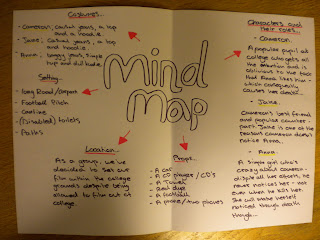 Costumes...
- Cameron; casual jeans, a top
and a hoodie.
- Jake; casual jeans, a top
and hoodie.
- Anna; baggy jeans, simple
top and dull hoodie.
Setting...
- Long Road/carpark
- Football Pitch
- Canteen
- (Disabled) toilets
- Paths
Mind
Map
Characters and
their roles...
- Cameron.
A popular pupil at
college who gets all
the attention and is
oblivious to the fact
that Anna likes him -
which consequently
causes her death.
- Jake.
Cameron's best friend
and popular counter
part. Jake is one of the
reasons Cameron doesn't
notice Anna.
- Anna.
A single girl who's
crazy about Cameron -
despite all her efforts, he
never notices her - not
even when he kills her.
She will make herself
noticed through death
though...
Location...
As a group, we've
decided to set our
film within the college
grounds despite being
allowed to film out of
college.
Props...
- A car
- A Mp3 player / CD's
- A towel
- Red dye
- A football
- A phone / two phones